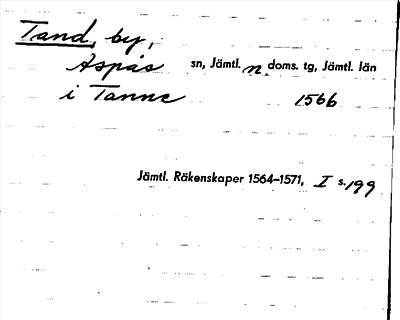 Tand, by,
Aspås sn, Jämtl. n. doms. tg, Jämtl. län
i Tanne 1566
Jämtl. Räkenskaper 1564–1571, I s. 199